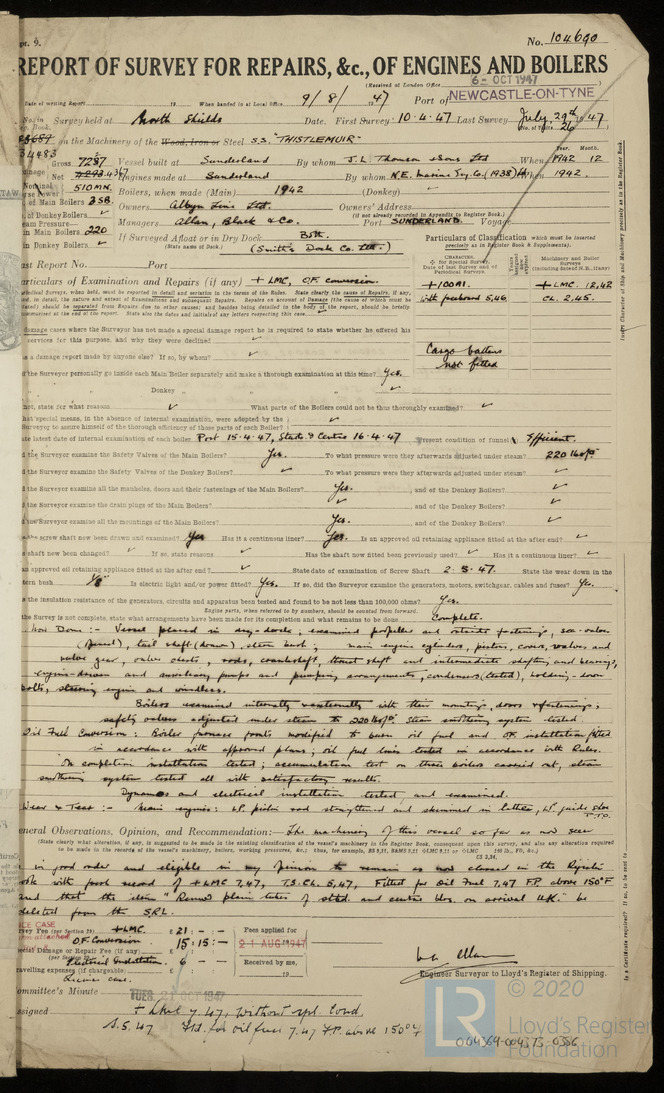 No. 104690
REPORT OF SURVEY FOR REPAIRS, &c., OF ENGINES AND BOILERS
(Received at London Office
6 - OCT 1947
Date of writing Report 19 When handed in at Local Office 9/8/1947 Port of NEWCASTLE-ON-TYNE
Survey held at North Shields Date. First Survey 10.4.47 Last Survey July 29th 1947
on the Machinery of the Wood, Iron or Steel S.S. "THISTLEMUIR"
Gross 7237 Vessel built at Sunderland By whom J.L. Thomson & Sons Ltd When 1942 12
Engines made at Sunderland By whom N.E. Marine Eng. Co. (1938) Ltd When 1942.
510 MN. Boilers, when made (Main) 1942 (Donkey)
of Main Boilers 3 SB. Owners Albyn Line Ltd. Owners' Address
(if not already recorded in Appendix to Register Book.)
Managers Allan, Black & Co. Port SUNDERLAND Voyage
in Main Boilers 220 If Surveyed Afloat or in Dry Dock Both.
in Donkey Boilers (State name of Dock.) (Smith's Dock Co. Ltd.)
Particulars of Classification which must be inserted
precisely as in Register Book & Supplements).
ast Report No. Port
articulars of Examination and Repairs (if any) + LMC, O.F. conversion.
+100A1. + LMC. 12,42
with freeboard 5,46. CL. 2,45.
Cargo battens
not fitted
services for this purpose, and why they were declined
a damage report made by anyone else? If so, by whom?
the Surveyor personally go inside each Main Boiler separately and make a thorough examination at this time? Yes.
Donkey
not, state for what reasons What parts of the Boilers could not be thus thoroughly examined?
Surveyor to assure himself of the thorough efficiency of those parts of each Boiler?
latest date of internal examination of each boiler Port 15.4.47, Starbd & Centre 16.4.47 Present condition of funnel Efficient.
the Surveyor examine the Safety Valves of the Main Boilers? Yes. To what pressure were they afterwards adjusted under steam? 220 lbs/□"
the Surveyor examine the Safety Valves of the Donkey Boilers? To what pressure were they afterwards adjusted under steam?
the Surveyor examine all the manholes, doors and their fastenings of the Main Boilers? Yes. and of the Donkey Boilers?
the Surveyor examine the drain plugs of the Main Boilers? and of the Donkey Boilers?
the Surveyor examine all the mountings of the Main Boilers? Yes. and of the Donkey Boilers?
the screw shaft now been drawn and examined? Yes Has it a continuous liner? Yes. Is an approved oil retaining appliance fitted at the after end?
shaft now been changed? If so, state reasons Has the shaft now fitted been previously used? Has it a continuous liner?
an approved oil retaining appliance fitted at the after end? State date of examination of Screw Shaft 2.5.47. State the wear down in the
stern bush 1/8" Is electric light and/or power fitted? Yes. If so, did the Surveyor examine the generators, motors, switchgear, cables and fuses? Yes.
the insulation resistance of the generators, circuits and apparatus been tested and found to be not less than 100,000 ohms? Yes.
Engine parts, when referred to by numbers, should be counted from forward.
the Survey is not complete, state what arrangements have been made for its completion and what remains to be done Complete.
Now Done :- Vessel placed in dry-dock; examined propeller and outside fastenings, sea-valves
tail shaft (drawn), stern bush; main engine cylinders, pistons, covers, valves and
valve gear, valve chests, rods, crankshaft, thrust shaft and intermediate shafting and bearings,
engine-driven and auxiliary pumps and pumping arrangements, condensers (tested), holding-down
bolts, steering engine and windlass.
Boilers examined internally & externally with their mountings, doors & fastenings;
safety valves adjusted under steam to 220 lbs/□" Steam smothering system tested
Oil Fuel Conversion: Boiler furnace fronts modified to burn oil fuel and O.F. installation fitted
in accordance with approved plans; oil fuel lines tested in accordance with Rules.
On completion installation tested; accumulation test on three boilers carried out, steam
smothering system tested all with satisfactory results.
Dynamos and electrical installation tested, and examined.
Wear & Tear :- Main engines: L.P. piston rod straightened and skimmed in lathe, L.P. guide shoe
P.T.O.
General Observations, Opinion, and Recommendation:— The machinery of this vessel so far as now seen
is in good order and eligible in my opinion to remain as now classed in the Register
Book with fresh record of +LMC 7,47, T.S. CL. 5,47, Fitted for Oil Fuel 7,47 F.P. above 150°F
and that the item "Renew plain tubes of stbd. and centre blrs. on arrival U.K." be
deleted from the S.R.L.
Survey Fee (per Section 29) +LMC. £ 21 : - : - Fees applied for
O.F. Conversion £ 15 : 15 : - 21 AUG 1947
Special Damage or Repair Fee (if any)
Electrical Installation £ 6 : - Received by me,
Travelling expenses (if chargeable) £ 19
Engineer Surveyor to Lloyd's Register of Shipping.
Committee's Minute TUES. 21 OCT 1947
Assigned + LMC 7.47, without spl. Cond.
S. 5.47 Ftd. for oil fuel 7.47 F.P. above 150°F
© 2020
LR
Lloyd's Register
Foundation
004369-004373-0386